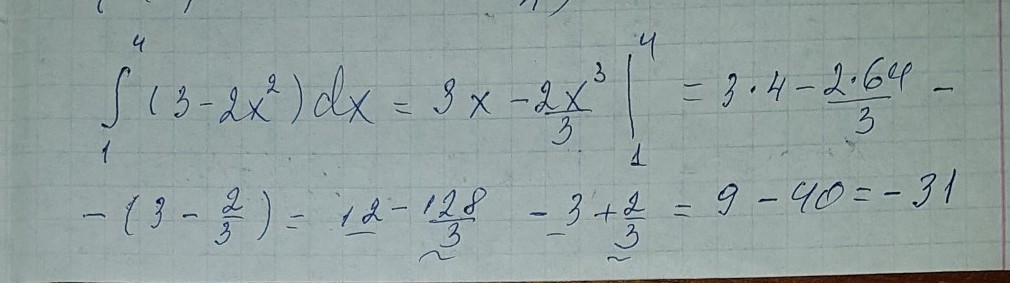 ∫₁⁴ (3 - 2x²) dx = 3x - 2x³/3 |₁⁴ = 3·4 - 2·64/3 -
- (3 - 2/3) = 12 - 128/3 - 3 + 2/3 = 9 - 40 = -31